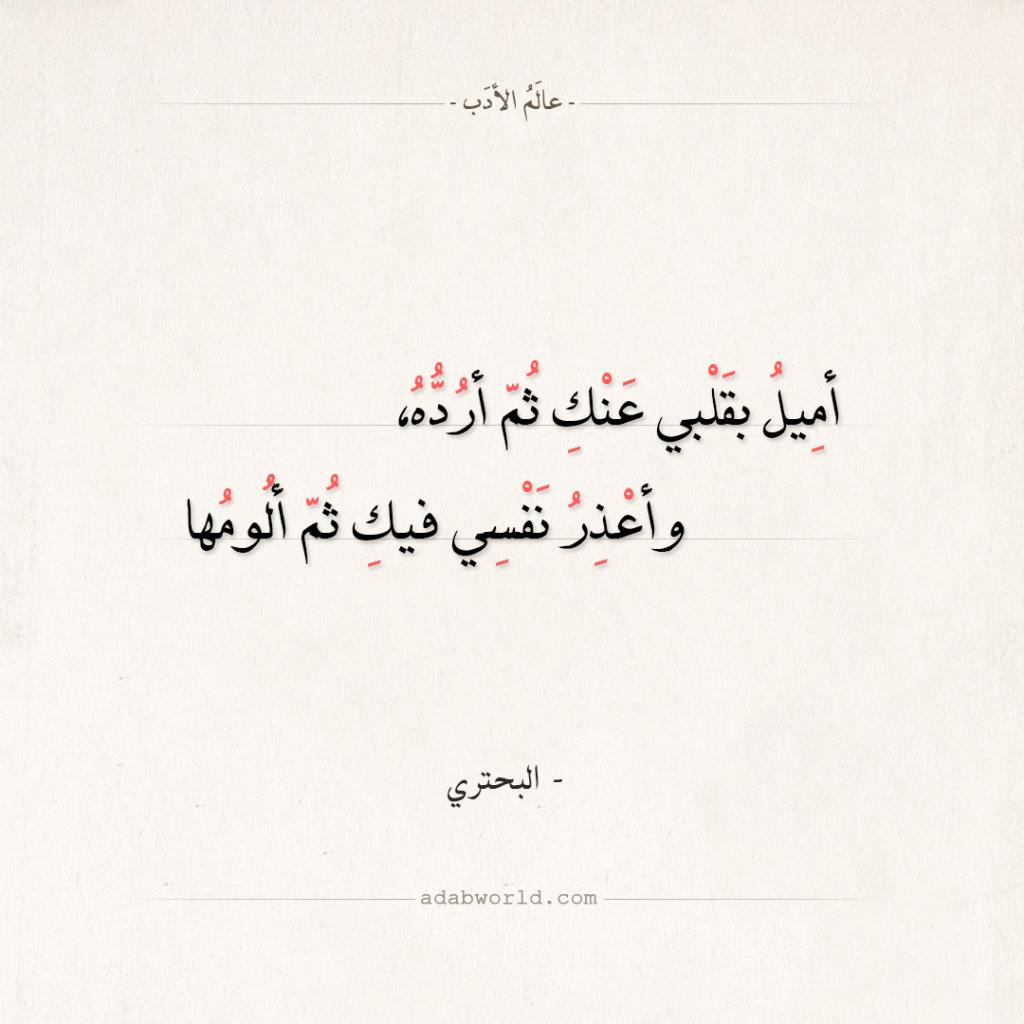 - عالَمُ الأدَب -
أمِيلُ بقَلْبي عَنْكِ ثُمّ أرُدُّهُ،
وأعْذِرُ نَفْسِي فيكِ ثُمّ ألُومُها
- البحتري
adabworld.com